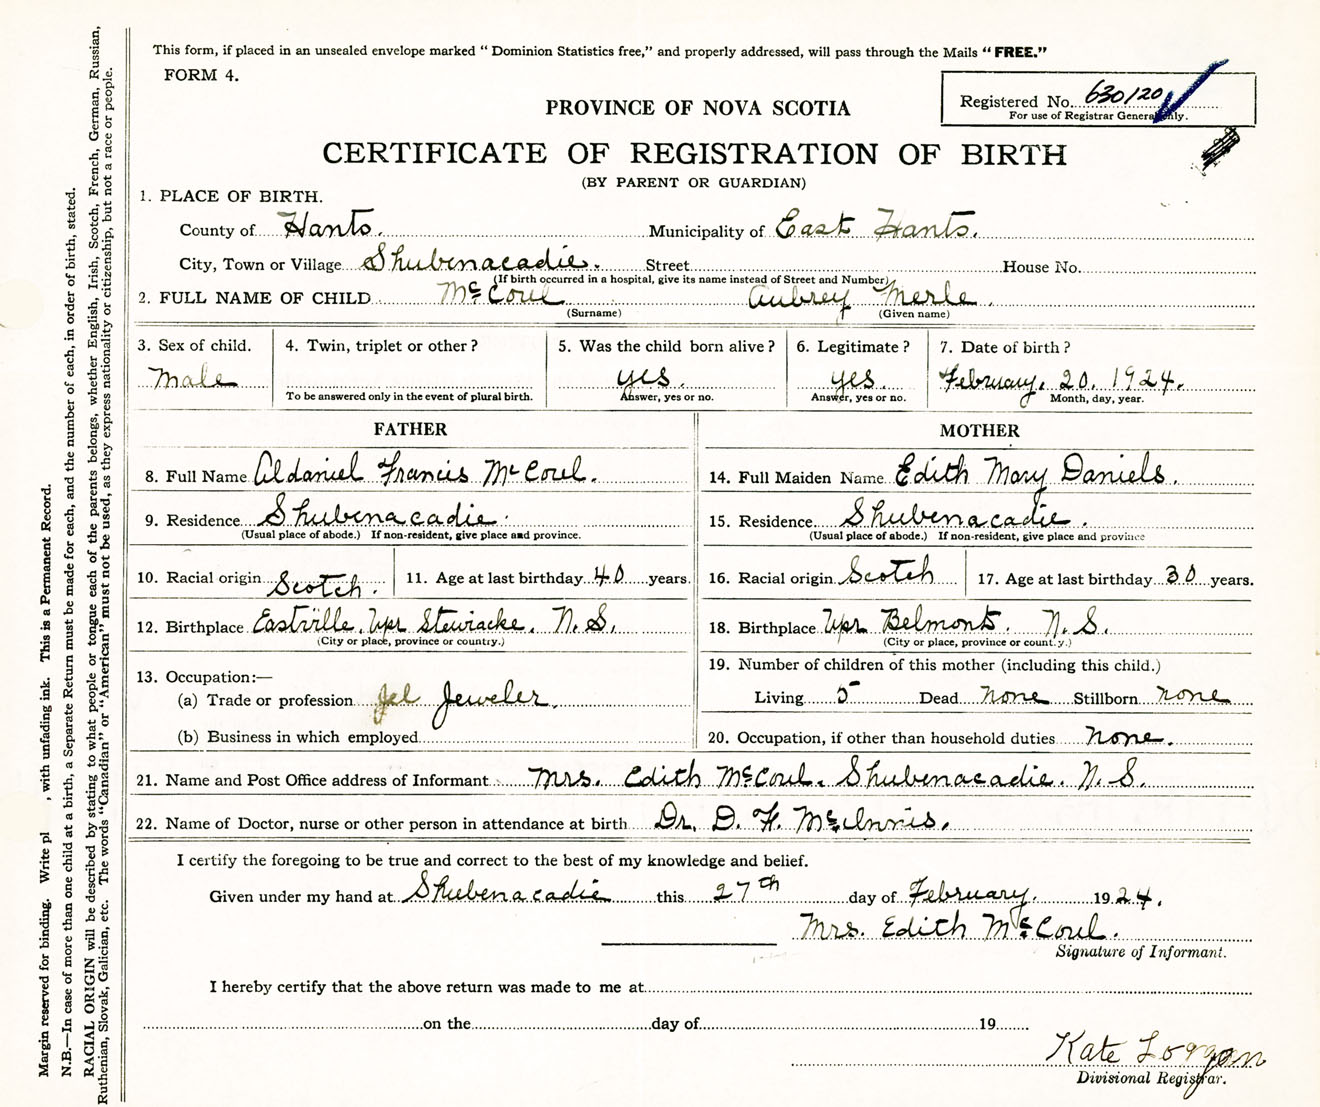 This form, if placed in an unsealed envelope marked "Dominion Statistics free," and properly addressed, will pass through the Mails "FREE."
FORM 4.
Registered No. 630120
For use of Registrar General only.
PROVINCE OF NOVA SCOTIA
CERTIFICATE OF REGISTRATION OF BIRTH
(BY PARENT OR GUARDIAN)
1. PLACE OF BIRTH.
County of Hants. Municipality of East Hants.
City, Town or Village Shubenacadie. Street House No.
(If birth occurred in a hospital, give its name instead of Street and Number)
2. FULL NAME OF CHILD McCoul Aubrey Merle.
(Surname) (Given name)
3. Sex of child. 4. Twin, triplet or other? 5. Was the child born alive? 6. Legitimate? 7. Date of birth?
Male yes. yes. February. 20. 1924.
To be answered only in the event of plural birth. Answer, yes or no. Answer, yes or no. Month, day, year.
FATHER MOTHER
8. Full Name Aldaniel Francis McCoul. 14. Full Maiden Name Edith Mary Daniels.
9. Residence Shubenacadie. 15. Residence Shubenacadie.
(Usual place of abode.) If non-resident, give place and province. (Usual place of abode.) If non-resident, give place and province
10. Racial origin Scotch. 11. Age at last birthday 40 years. 16. Racial origin Scotch 17. Age at last birthday 30 years.
12. Birthplace Eastville, Upr Stewiacke. N.S. 18. Birthplace Upr Belmont. N.S.
(City or place, province or country.) (City or place, province or country.)
13. Occupation:— 19. Number of children of this mother (including this child.)
(a) Trade or profession Jel Jeweler. Living 5 Dead none Stillborn none
(b) Business in which employed 20. Occupation, if other than household duties none.
21. Name and Post Office address of Informant Mrs. Edith McCoul. Shubenacadie. N.S.
22. Name of Doctor, nurse or other person in attendance at birth Dr. D. F. McInnis.
I certify the foregoing to be true and correct to the best of my knowledge and belief.
Given under my hand at Shubenacadie this 27th day of February. 1924.
Mrs. Edith McCoul.
Signature of Informant.
I hereby certify that the above return was made to me at
on the day of 19
Kate Logan
Divisional Registrar.
Margin reserved for binding. Write pl , with unfading ink. This is a Permanent Record.
N.B.—In case of more than one child at a birth, a Separate Return must be made for each, and the number of each, in order of birth, stated.
RACIAL ORIGIN will be described by stating to what people or tongue each of the parents belongs, whether English, Irish, Scotch, French, German, Russian,
Ruthenian, Slovak, Galician, etc. The words "Canadian" or "American" must not be used, as they express nationality or citizenship, but not a race or people.